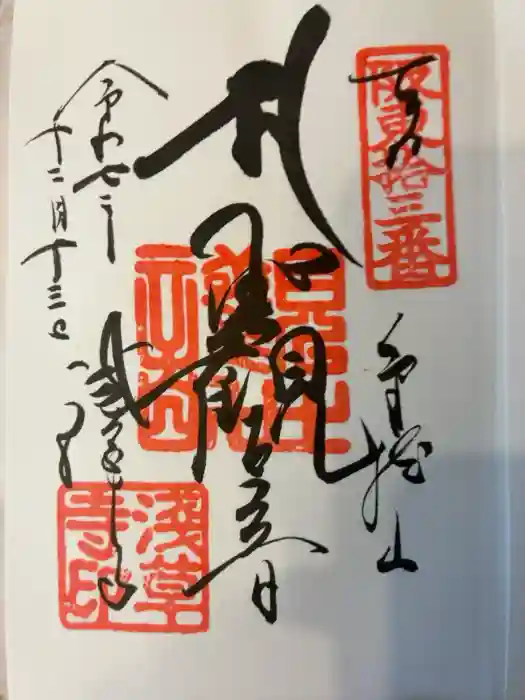 奉拝
坂東拾三番
金龍山
聖観世音
浅草寺
淺草寺印
令和七年
十二月十三日